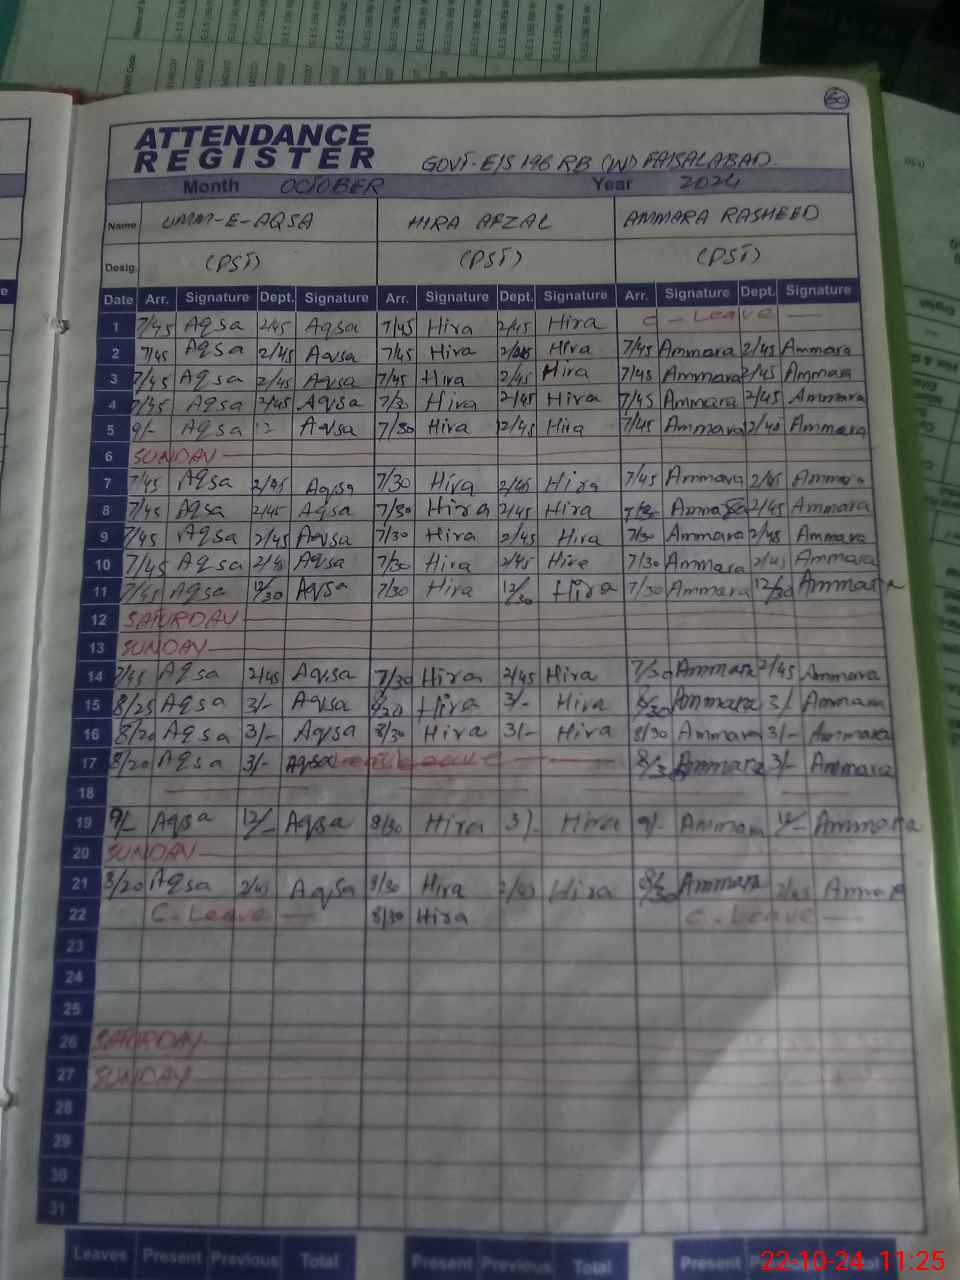 60
ATTENDANCE
REGISTER GOVT-E/S 196 RB (W) FAISALABAD.
Month OCTOBER Year 2024
Name UMM-E-AQSA HIRA AFZAL AMMARA RASHEED
Desig. (PST) (PST) (PST)
Date Arr. Signature Dept. Signature Arr. Signature Dept. Signature Arr. Signature Dept. Signature
1 7/45 Aqsa 2/45 Aqsa 7/45 Hira 2/45 Hira C - Leave
2 7/45 Aqsa 2/45 Aqsa 7/45 Hira 2/45 Hira 7/45 Ammara 2/45 Ammara
3 7/45 Aqsa 2/45 Aqsa 7/45 Hira 2/45 Hira 7/45 Ammara 2/45 Ammara
4 7/45 Aqsa 2/45 Aqsa 7/30 Hira 2/45 Hira 7/45 Ammara 2/45 Ammara
5 9/- Aqsa 12 Aqsa 7/30 Hira 12/45 Hira 7/45 Ammara 2/45 Ammara
6 SUNDAY
7 7/45 Aqsa 2/45 Aqsa 7/30 Hira 2/45 Hira 7/45 Ammara 2/45 Ammara
8 7/45 Aqsa 2/45 Aqsa 7/30 Hira 2/45 Hira 7/30 Ammara 2/45 Ammara
9 7/45 Aqsa 2/45 Aqsa 7/30 Hira 2/45 Hira 7/30 Ammara 2/45 Ammara
10 7/45 Aqsa 2/45 Aqsa 7/30 Hira 2/45 Hira 7/30 Ammara 2/45 Ammara
11 7/45 Aqsa 12/30 Aqsa 7/30 Hira 12/30 Hira 7/30 Ammara 12/30 Ammara
12 SATURDAY
13 SUNDAY
14 7/45 Aqsa 2/45 Aqsa 7/30 Hira 2/45 Hira 7/30 Ammara 2/45 Ammara
15 8/25 Aqsa 3/- Aqsa 8/30 Hira 3/- Hira 8/30 Ammara 3/- Ammara
16 8/20 Aqsa 3/- Aqsa 8/30 Hira 3/- Hira 8/30 Ammara 3/- Ammara
17 8/20 Aqsa 3/- Aqsa Leave 8/30 Ammara 3/- Ammara
18
19 9/- Aqsa 12/- Aqsa 8/30 Hira 3/- Hira 9/- Ammara 12/- Ammara
20 SUNDAY
21 8/20 Aqsa 2/45 Aqsa 8/30 Hira 2/45 Hira 8/30 Ammara 2/45 Ammara
22 C. Leave 8/30 Hira C. Leave
23
24
25
26 SATURDAY
27 SUNDAY
28
29
30
31
Leaves Present Previous Total Present Previous Total Present
22-10-24 11:25